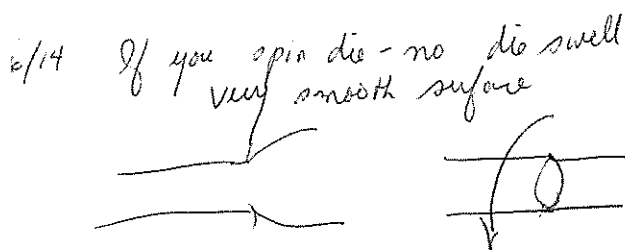 6/14 If you spin die - no die swell
very smooth surface